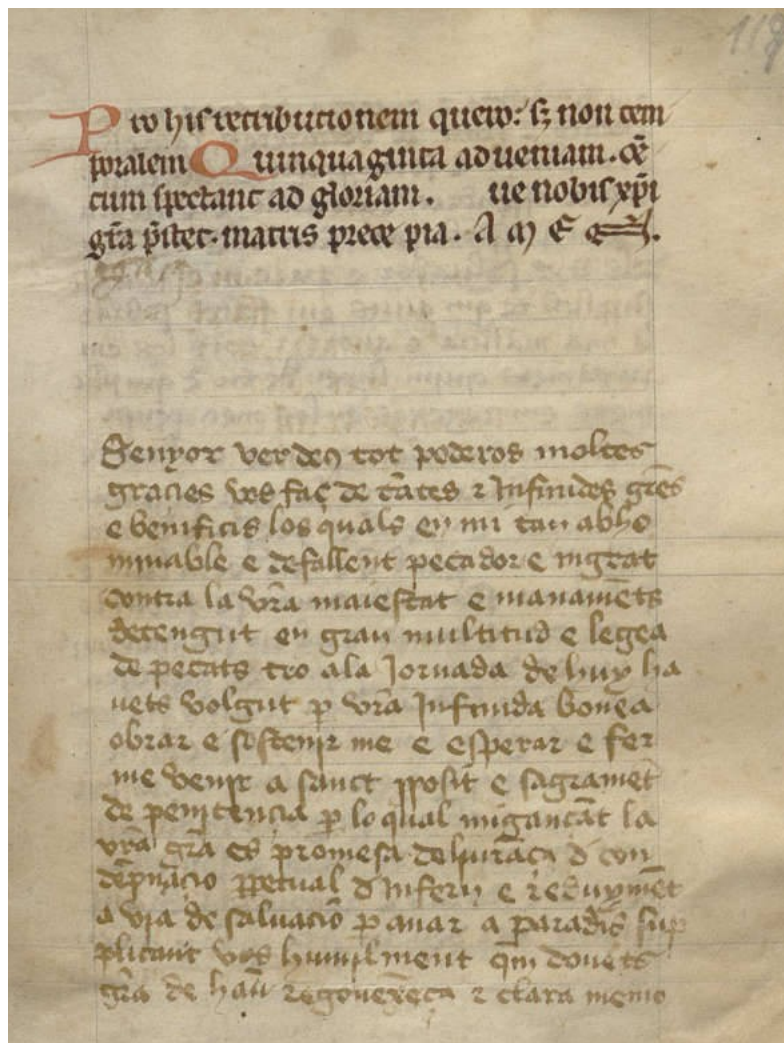 Pro his retribucionem quero: sz non tem
poralem Quinquaginta ad veniam. cē
tum spectant ad gloriam. ue nobis xp̄i
gr̄a p̄stet. matris prece pia. A M E N.
Senyor ver deus tot poderos moltes
gracies vos faç de tātes z Infinides gr̄es
e benificis los quals en mi tan abho
minable e defallent pecador e ingrat
contra la vr̄a maiestat e manamēts
detengut en gran multitud e legea
de pecats tro ala Jornada de huy ha
uets volgut p vr̄a Infinida bonea
obrar e sostenir me e esperar e fer
me venir a sanct pposit e sagramēt
de penitencia p lo qual migançāt la
vr̄a gr̄a es promesa deliurāça d con
dēpnacio ppetual d Infern e reduymēt
a via de saluacio p anar a paradis sup
plicant vos humilment qm donets
gr̄a de hau regonexēça z clara memo